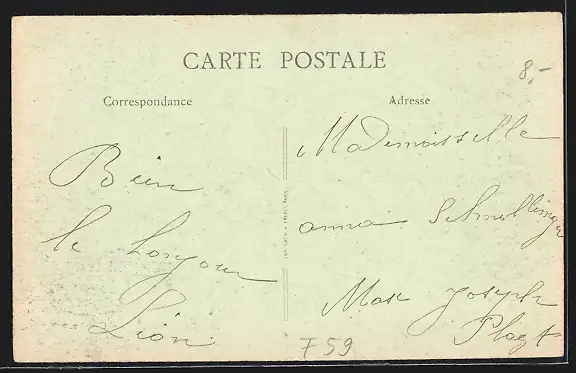 CARTE POSTALE
8,-
Correspondance
Adresse
Bien
le Lonjour
Lion
Mademoisselle
anna
Max Joseph
Platz
F 59